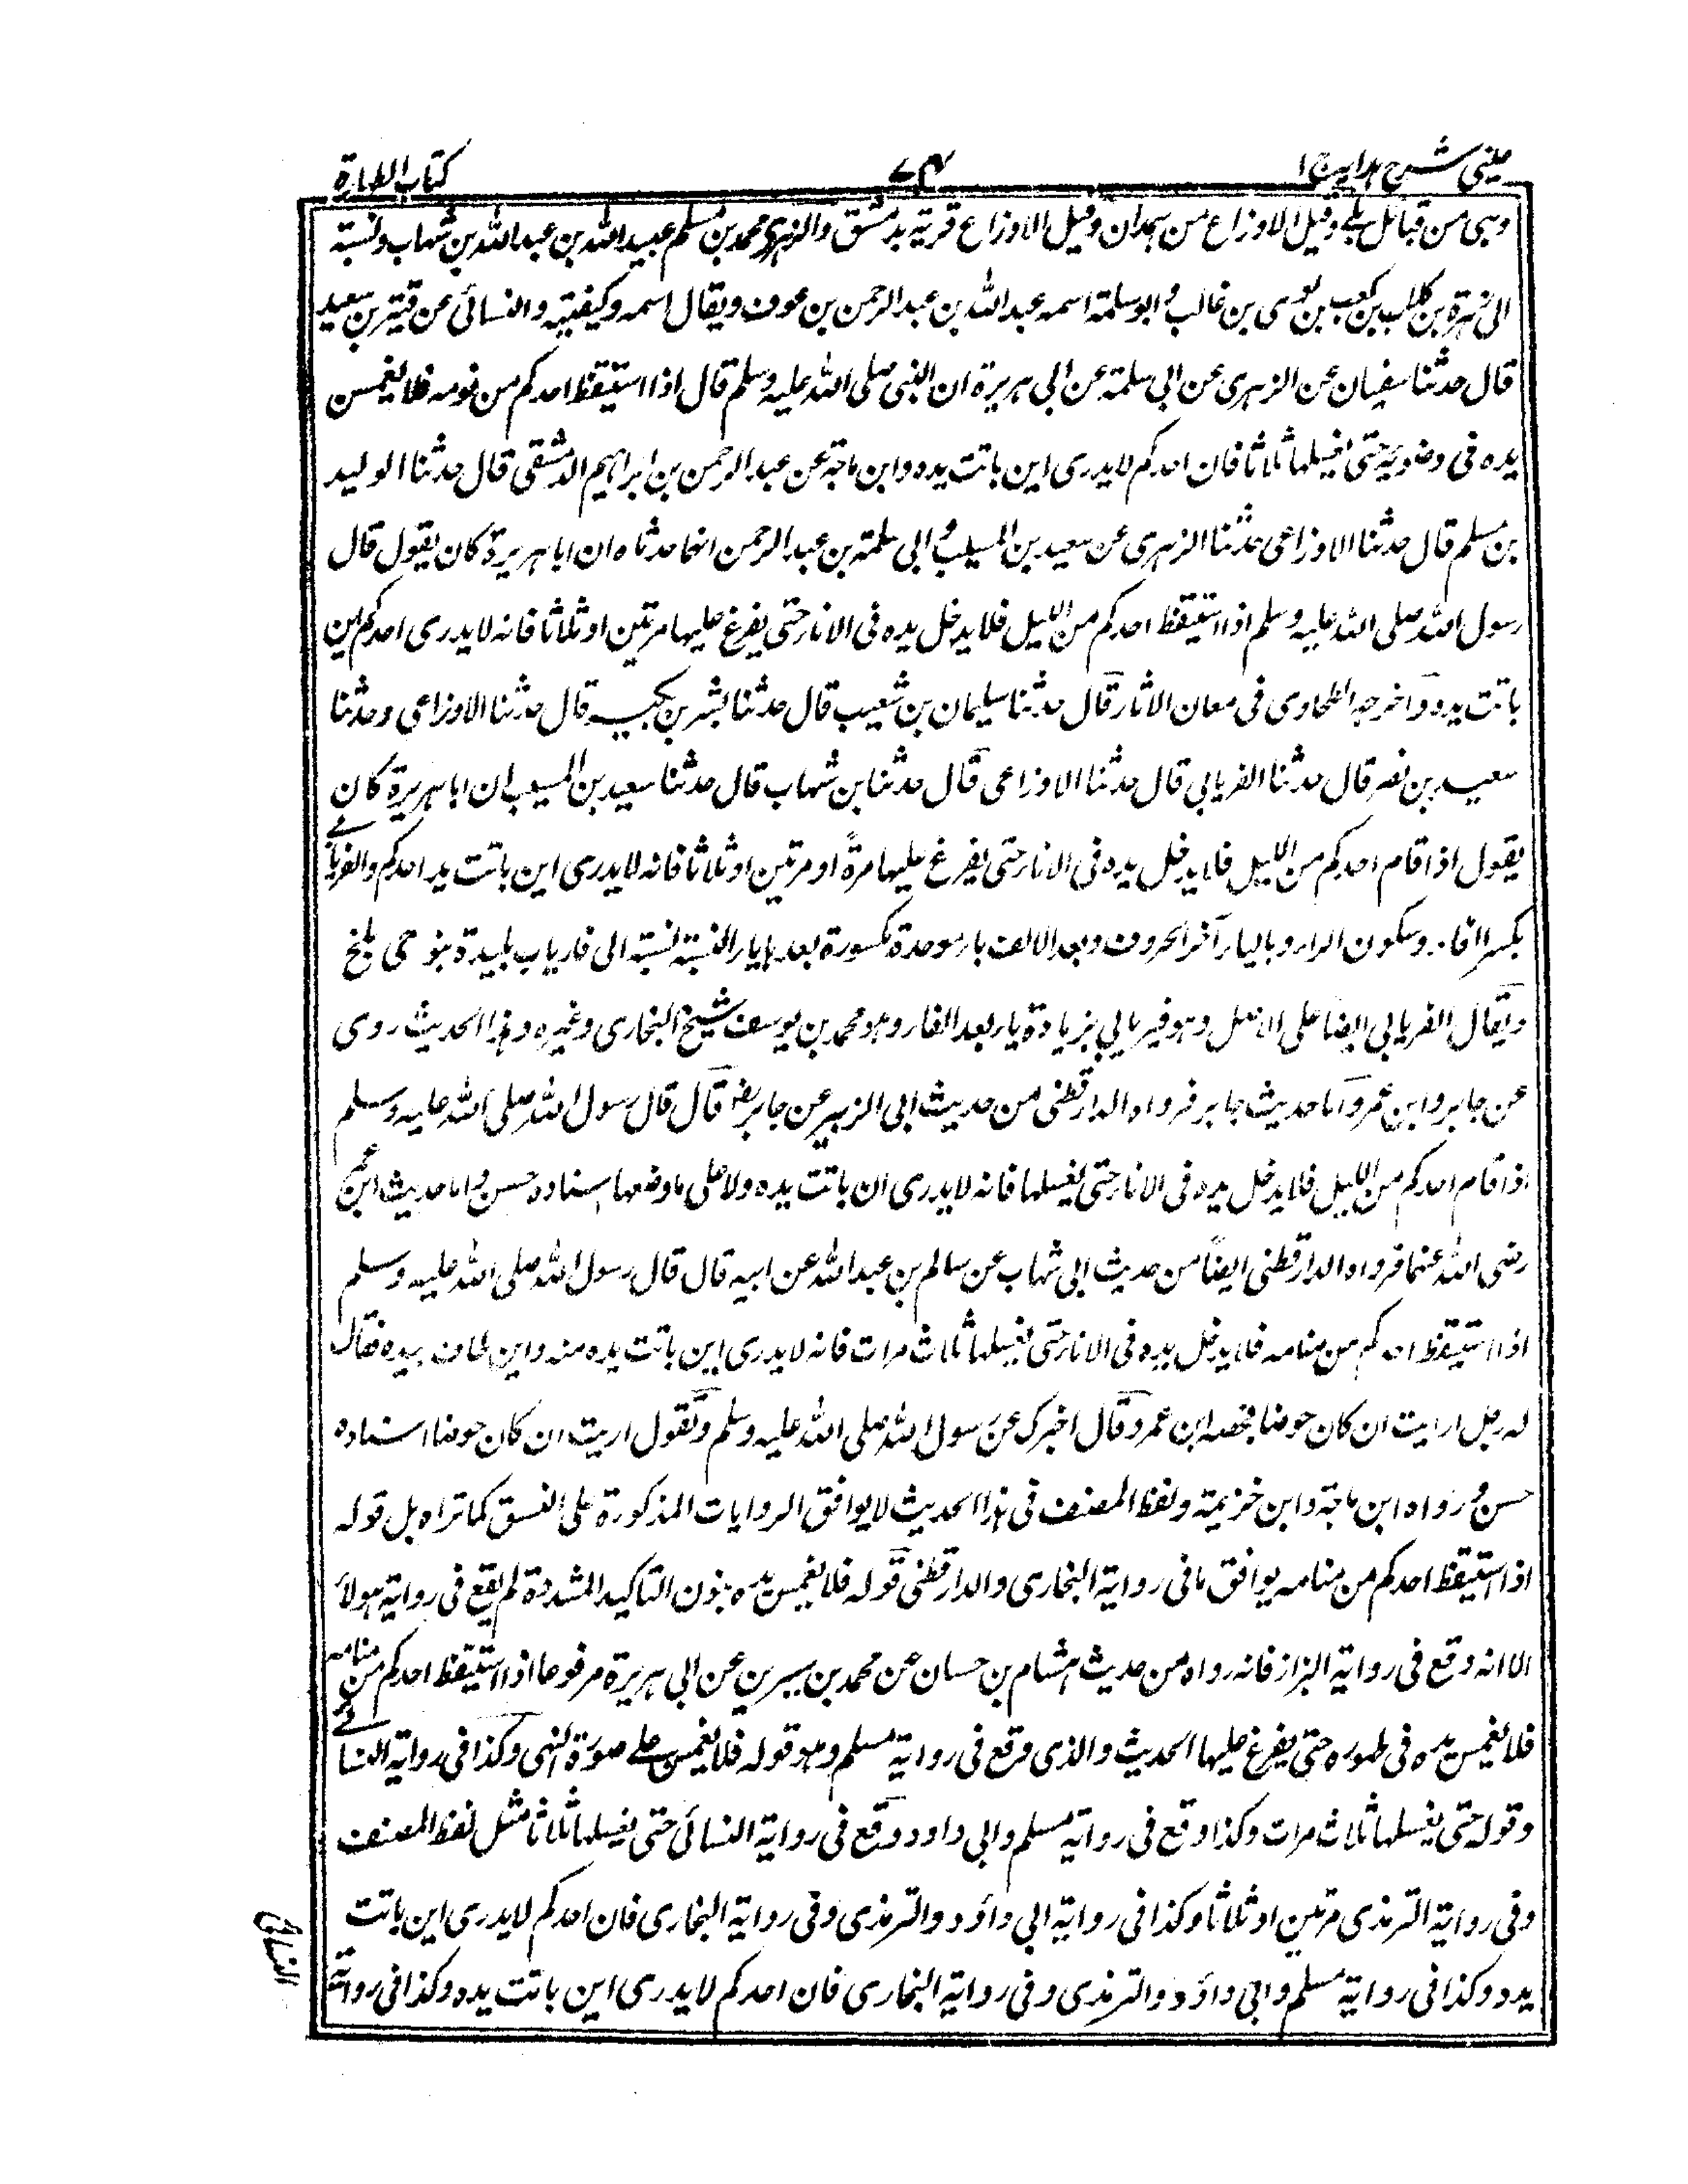 عینی شرح ہدایہ ج ا
۷۴
کتاب الطہارة
وہی من قبائل وقیل الاوزاع من ہمدان وقیل الاوزاع قریة بدمشق والزہری محمد بن مسلم عبید اللہ بن عبد اللہ بن شہاب ونسبتہ
الی زہرة بن کلاب بن کعب بن لوی بن غالب وابو سلمة اسمہ عبد اللہ بن عبد الرحمن بن عوف ویقال اسمہ وکنیتہ والنسائی عن قتیبة بن سعید
قال حدثنا سفیان عن الزہری عن ابی سلمة عن ابی ہریرة ان النبی صلی اللہ علیہ وسلم قال اذا استیقظ احدکم من نومہ فلا یغمس
یدہ فی وضوئہ حتی یغسلہا ثلاثا فان احدکم لا یدری این باتت یدہ وابن ماجة عن عبد الرحمن بن ابراہیم الدمشقی قال حدثنا الولید
بن مسلم قال حدثنا الاوزاعی حدثنا الزہری عن سعید بن المسیب وابی سلمة بن عبد الرحمن انہما حدثاہ ان ابا ہریرة کان یقول قال
رسول اللہ صلی اللہ علیہ وسلم اذا استیقظ احدکم من اللیل فلا یدخل یدہ فی الاناء حتی یفرغ علیہا مرتین او ثلاثا فانہ لا یدری احدکم این
باتت یدہ واخرجہ الطحاوی فی معان الاثار قال حدثنا سلیمان بن شعیب قال حدثنا بشر بن بکر قال حدثنا الاوزاعی وحدثنا
سعید بن نصر قال حدثنا الفریابی قال حدثنا الاوزاعی قال حدثنا بن شہاب قال حدثنا سعید بن المسیب ان ابا ہریرة کان
یقول اذا قام احدکم من اللیل فلا یدخل یدہ فی الاناء حتی یفرغ علیہا مرةً او مرتین او ثلاثا فانہ لا یدری این باتت ید احدکم والفریابے
بکسر الفاء وسکون الراء وبالیاء آخر الحروف وبعد الالف باء موحدة مکسورة بعدہا یاء النسبة نسبتہ الی فاریاب بلیدة بنواحی بلخ
ویقال الفریابی ایضا علی الاصل وہو فیریابی بزیادة یاء بعد الفاء وہو محمد بن یوسف شیخ البخاری وغیرہ وہذا الحدیث روی
عن جابر وابن عمر واما حدیث جابر فرواہ الدارقطنی من حدیث ابی الزبیر عن جابر رض قال قال رسول اللہ صلی اللہ علیہ وسلم
اذا قام احدکم من اللیل فلا یدخل یدہ فی الاناء حتی یغسلہا فانہ لا یدری این باتت یدہ ولا علی ما وضعہا اسنادہ حسن واما حدیث ابن عمر
رضی اللہ عنہما فرواہ الدارقطنی ایضاً من حدیث ابی شہاب عن سالم بن عبد اللہ عن ابیہ قال قال رسول اللہ صلی اللہ علیہ وسلم
اذا استیقظ احدکم من منامہ فلا یدخل یدہ فی الاناء حتی یغسلہا ثلاث مرات فانہ لا یدری این باتت یدہ منہ واین طاف یدہ فقال
لہ رجل ارایت ان کان حوضا فحصبہ ابن عمر وقال اخبرک عن رسول اللہ صلی اللہ علیہ وسلم وتقول اریت ان کان حوضا اسنادہ
حسن ورواہ ابن ماجة وابن خزیمة ولفظ المصنف فی ہذا الحدیث لا یوافق الروایات المذکورة علی النسق کما تراہ بل قولہ
اذا استیقظ احدکم من منامہ یوافق ما فی روایة البخاری والدارقطنی قولہ فلا یغمسن یدہ بنون التاکید المشددة لم یقع فی روایة ہولاء
الا انہ وقع فی روایة البزاز فانہ رواہ من حدیث ہشام بن حسان عن محمد بن سیرین عن ابی ہریرة مرفوعا اذا استیقظ احدکم من منامہ
فلا یغمسن یدہ فی طہورہ حتی یفرغ علیہا الحدیث والذی وقع فی روایة مسلم وہو قولہ فلا یغمس علے صورة النہی وکذا فی روایة النسائے
وقولہ حتی یغسلہا ثلاث مرات وکذا وقع فی روایة مسلم وابی داود ووقع فی روایة النسائی حتی یغسلہا ثلاثا مثل لفظ المصنف
وفی روایة الترمذی مرتین او ثلاثا وکذا فی روایة ابی داؤد والترمذی وفی روایة البخاری فان احدکم لا یدری این باتت
یدہ وکذا فی روایة مسلم وابی داؤد والترمذی وفی روایة البخاری فان احدکم لا یدری این باتت یدہ وکذا فی روایة
النسائی